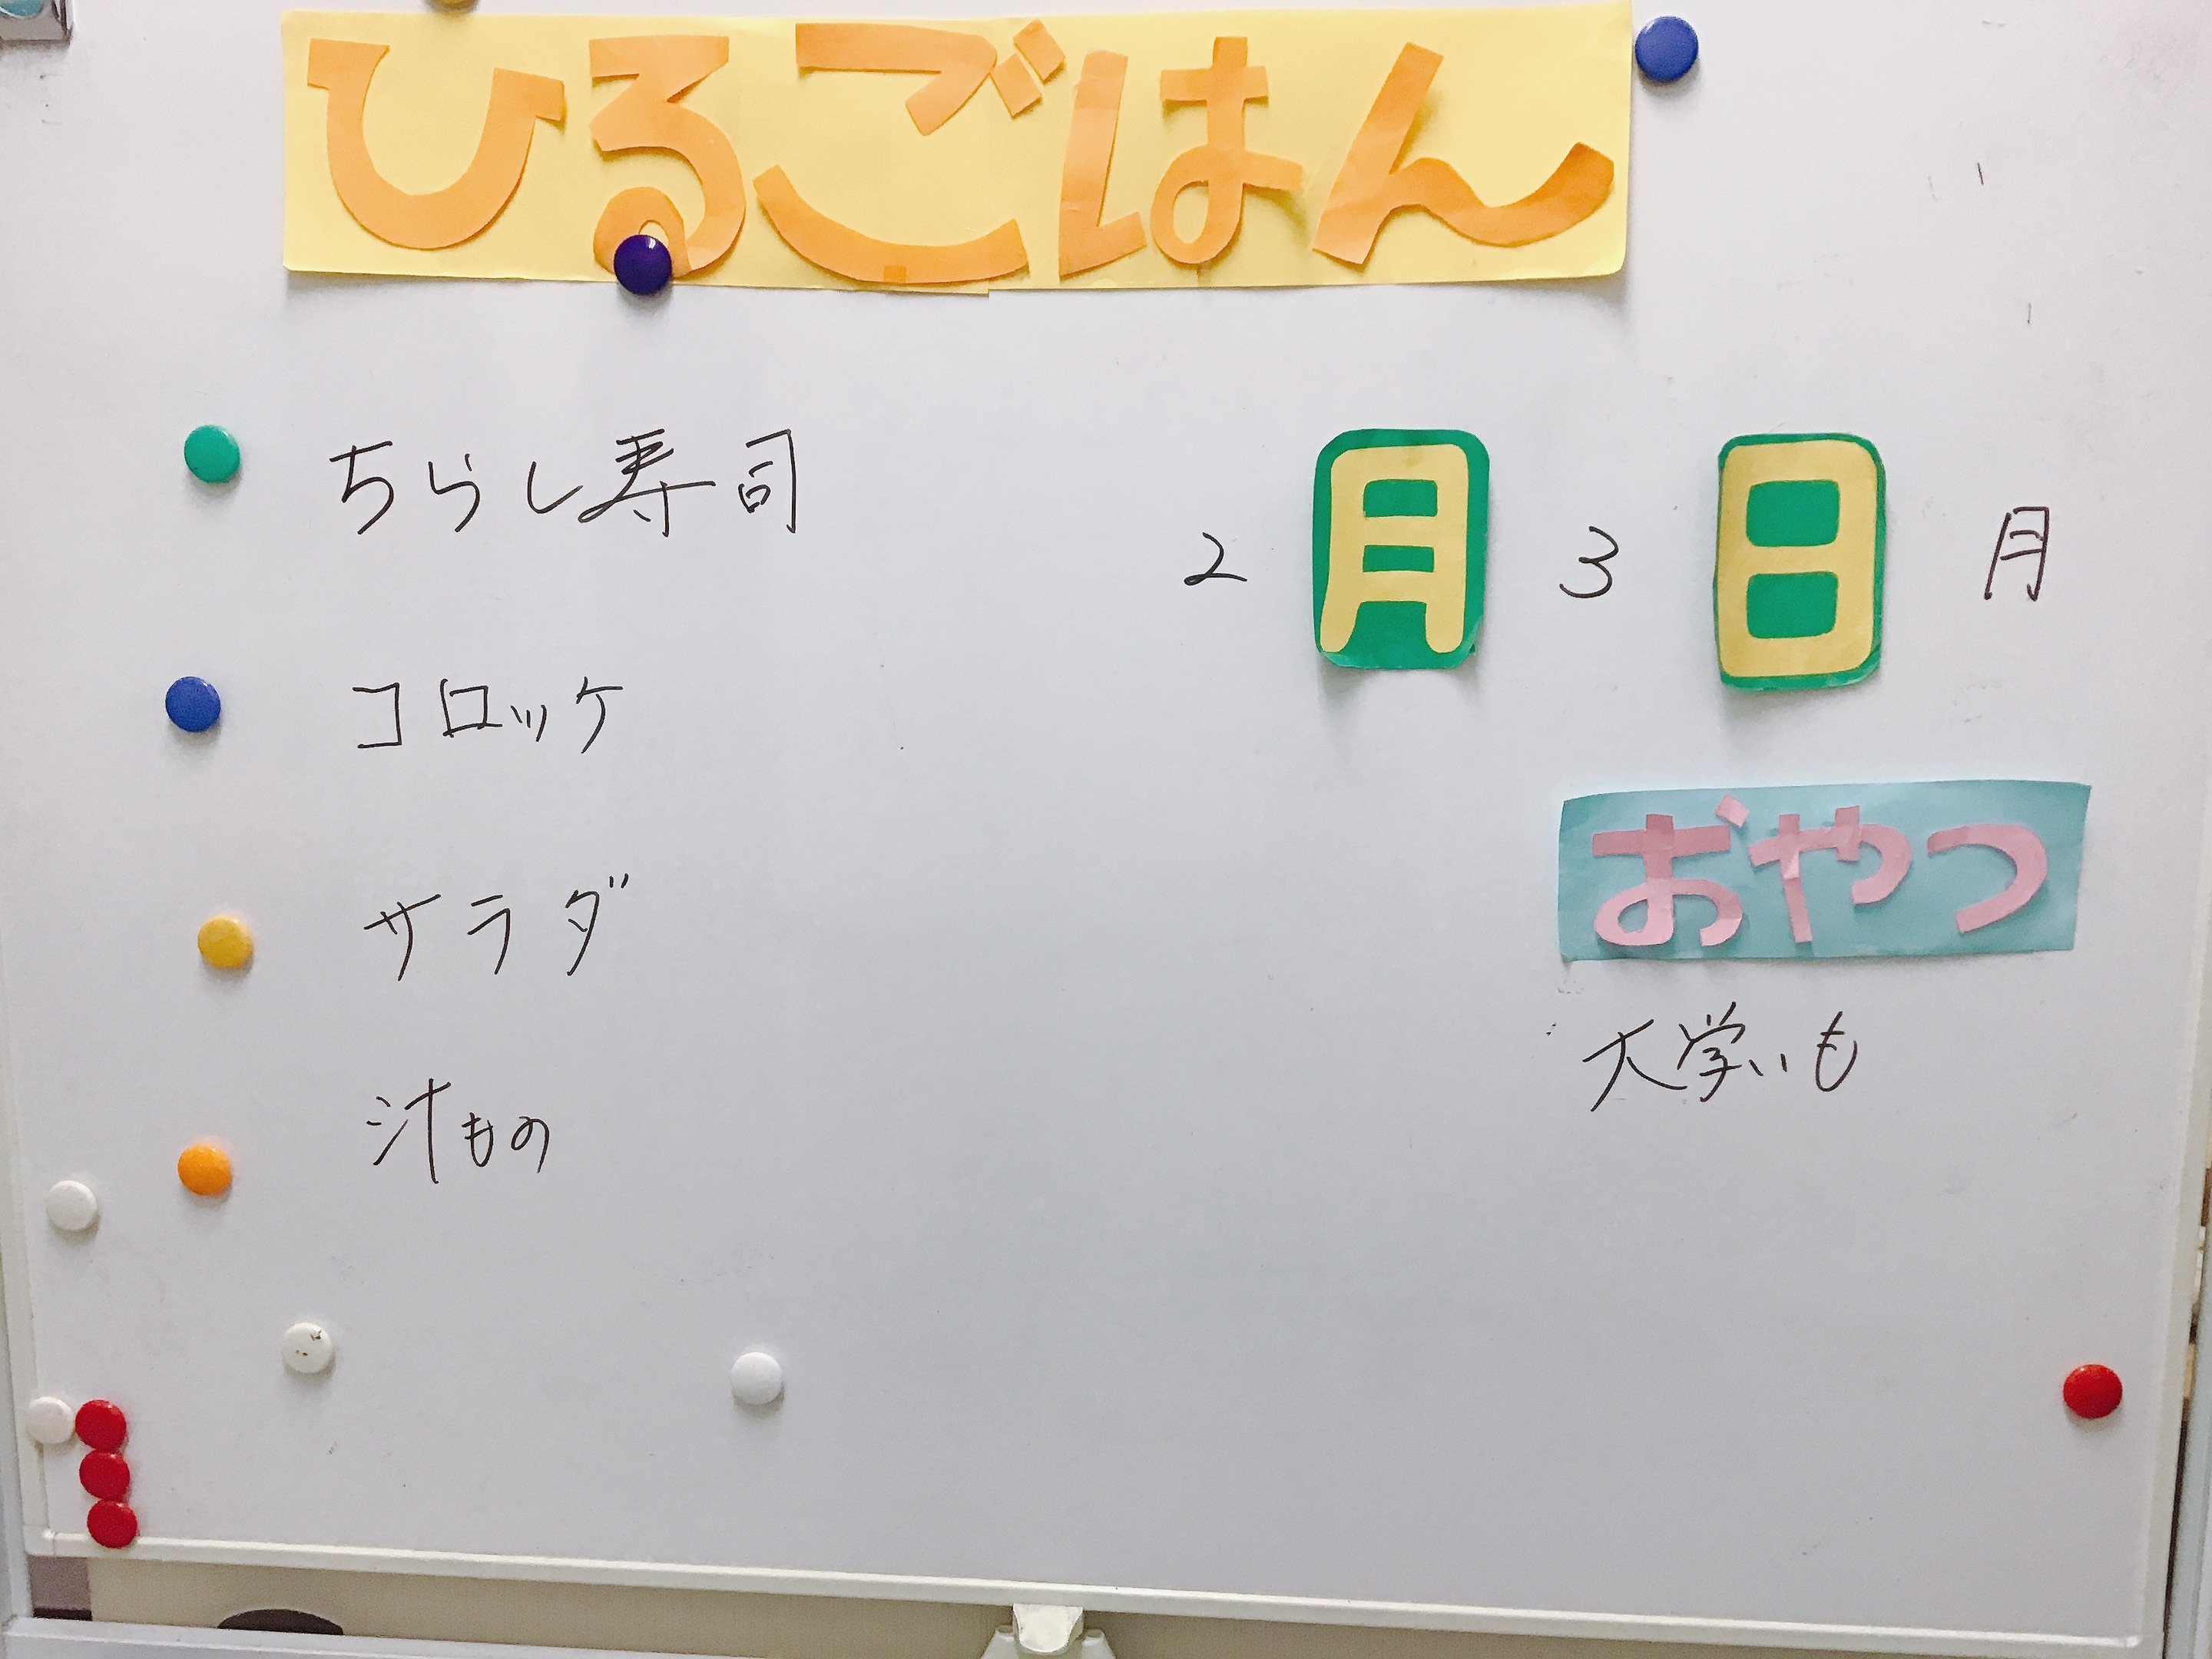 ひるごはん
ちらし寿司
2月3日 月
コロッケ
サラダ
汁もの
おやつ
大学いも